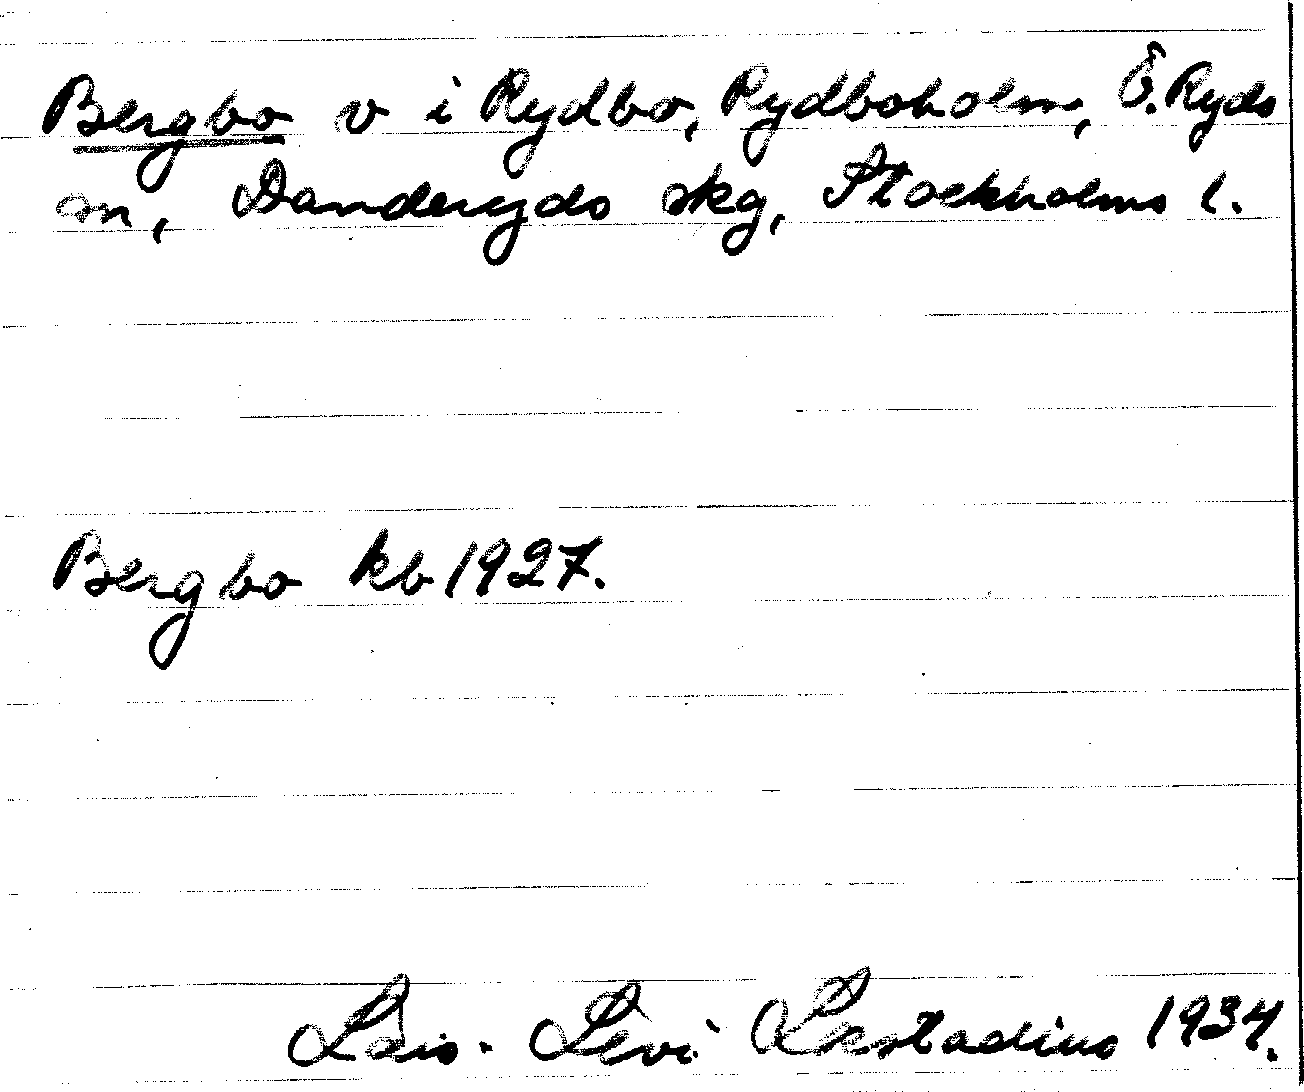 Bergbo v i Rydbo, Rydboholm, Ö. Ryds
sn, Danderyds skg, Stockholms l.
Bergbo kb 1927.
Lars-Levi Læstadius 1934.